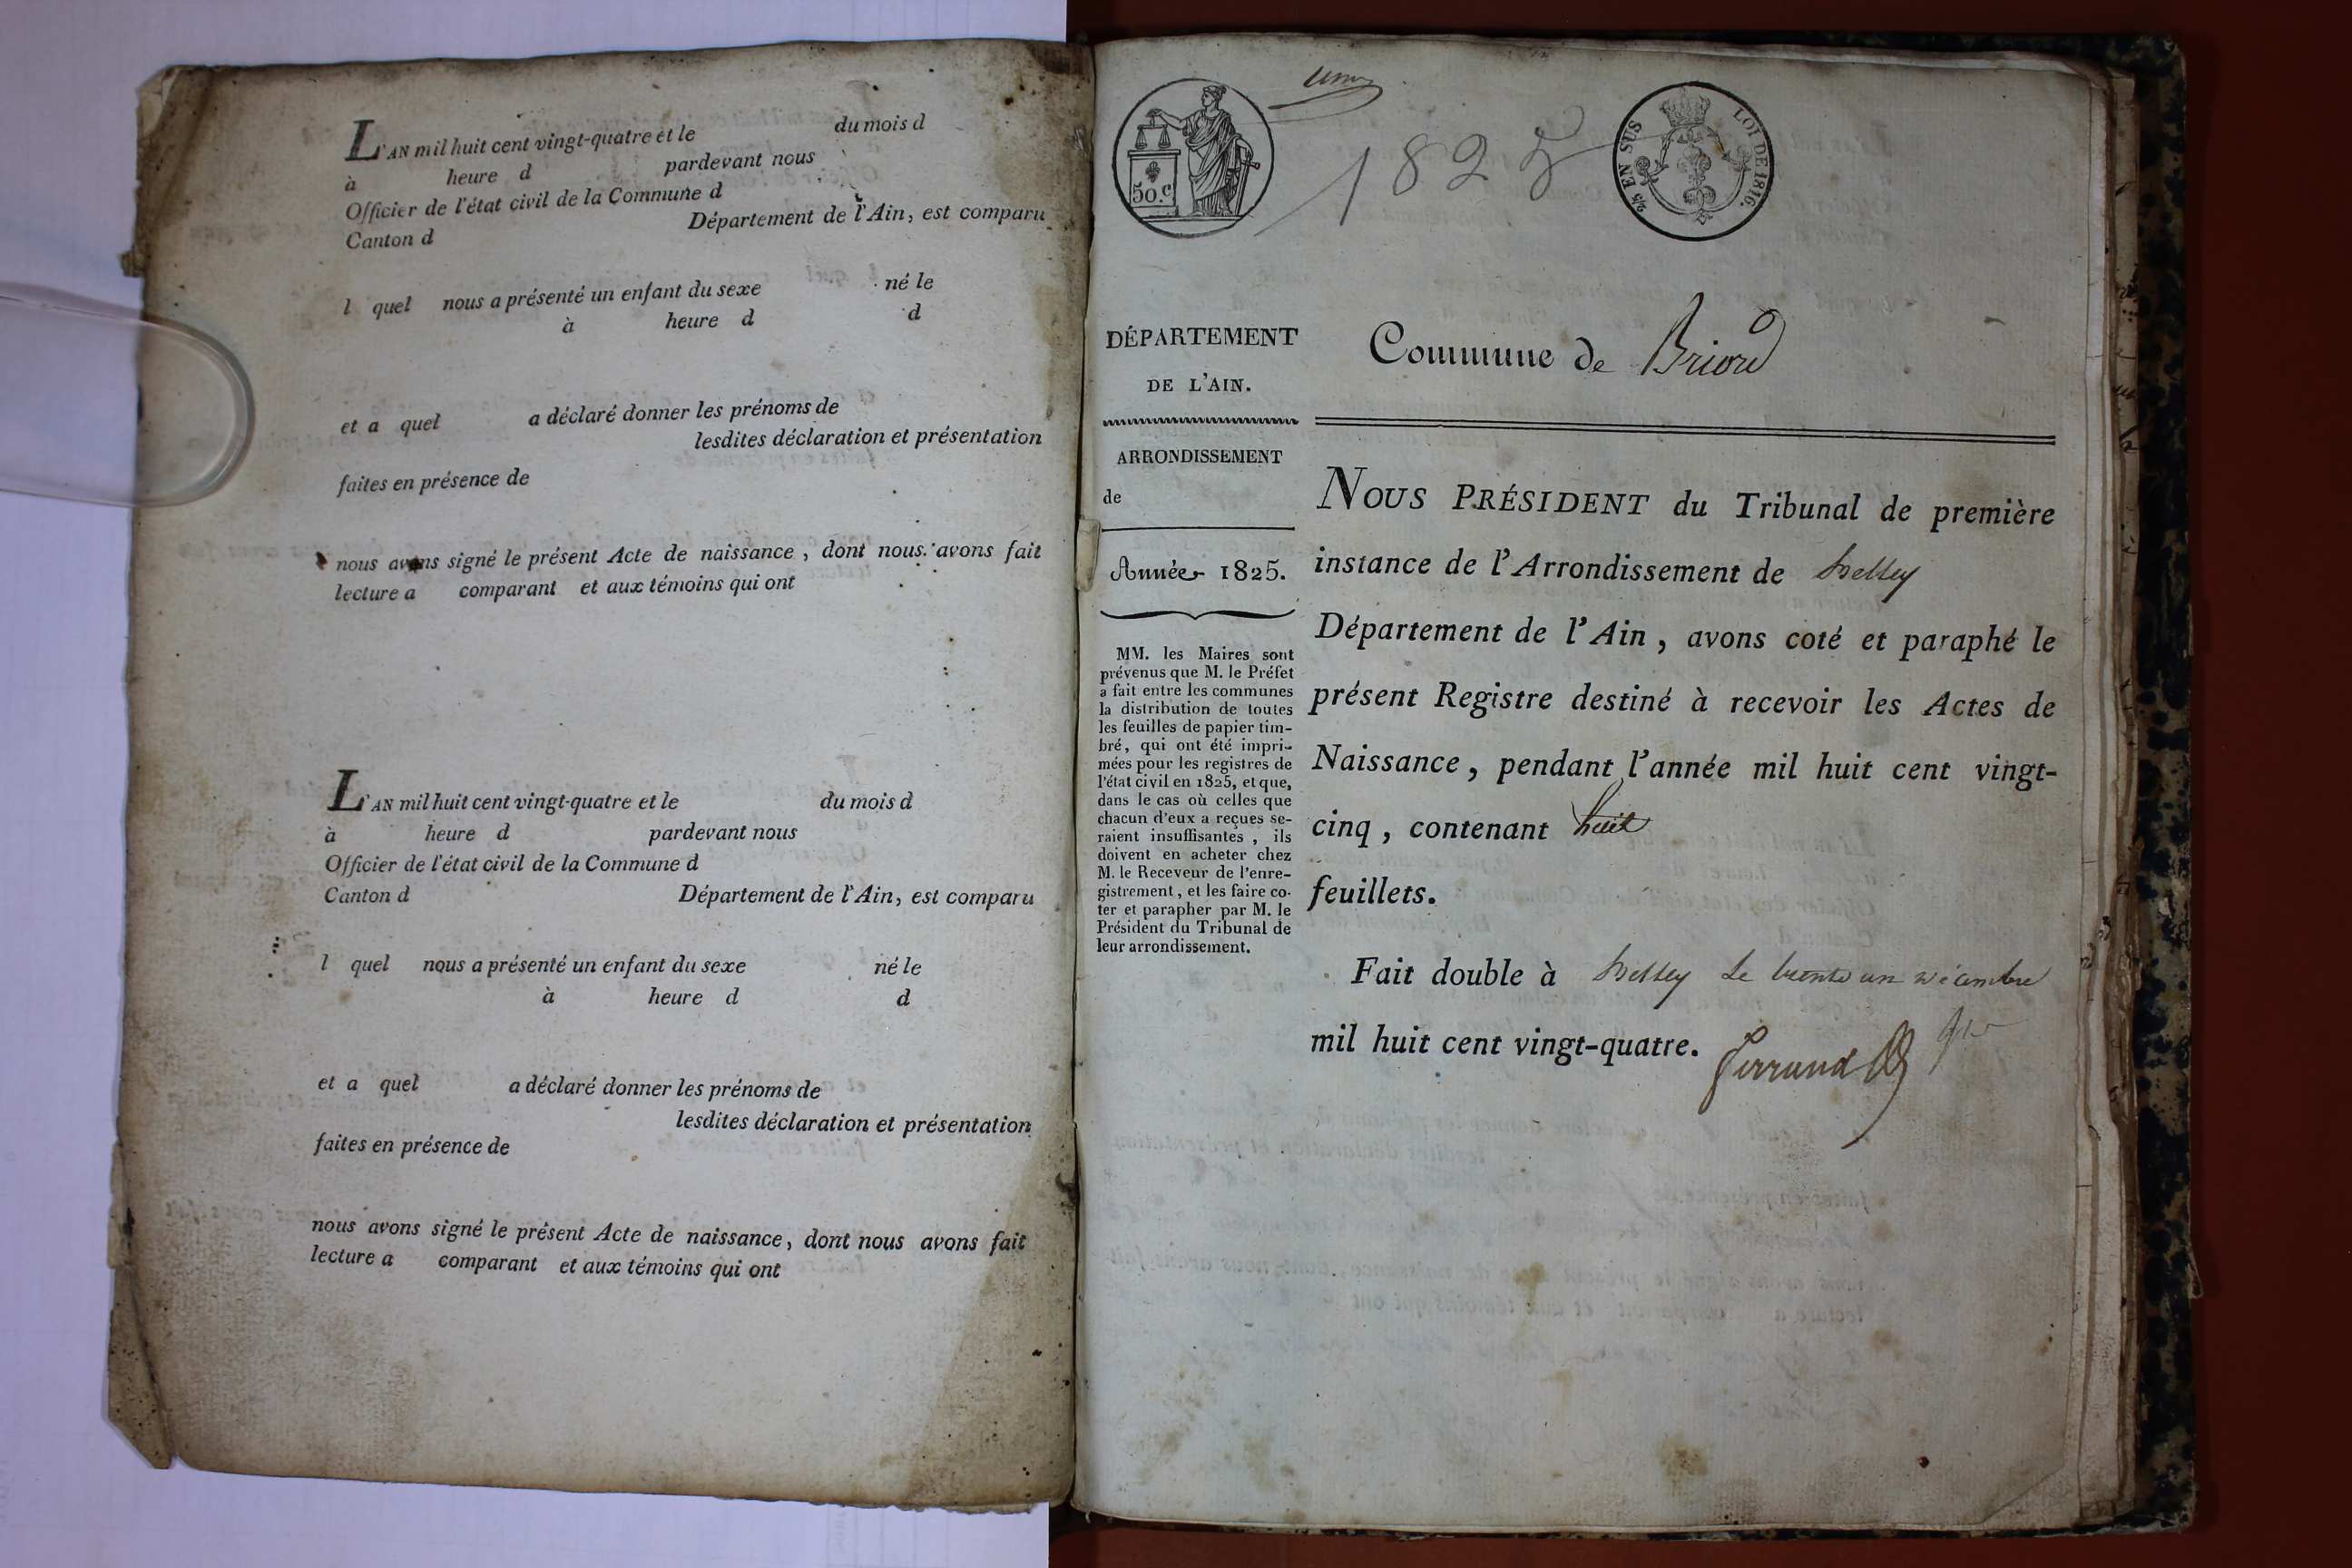 L'AN mil huit cent vingt-quatre et le du mois d
à heure d pardevant nous
Officier de l'état civil de la Commune d
Canton d Département de l'Ain, est comparu
l quel nous a présenté un enfant du sexe né le
à heure d d
et a quel a déclaré donner les prénoms de
lesdites déclaration et présentation
faites en présence de
nous avons signé le présent Acte de naissance, dont nous avons fait
lecture a comparant et aux témoins qui ont
L'AN mil huit cent vingt-quatre et le du mois d
à heure d pardevant nous
Officier de l'état civil de la Commune d
Canton d Département de l'Ain, est comparu
l quel nous a présenté un enfant du sexe né le
à heure d d
et a quel a déclaré donner les prénoms de
lesdites déclaration et présentation
faites en présence de
nous avons signé le présent Acte de naissance, dont nous avons fait
lecture a comparant et aux témoins qui ont
50.c
1825
2/5 EN SUS LOI DE 1816.
DÉPARTEMENT
DE L'AIN.
ARRONDISSEMENT
de
Année 1825.
MM. les Maires sont
prévenus que M. le Préfet
a fait entre les communes
la distribution de toutes
les feuilles de papier tim-
bré, qui ont été impri-
mées pour les registres de
l'état civil en 1825, et que,
dans le cas où celles que
chacun d'eux a reçues se-
raient insuffisantes, ils
doivent en acheter chez
M. le Receveur de l'enre-
gistrement, et les faire co-
ter et parapher par M. le
Président du Tribunal de
leur arrondissement.
Commune de Briord
NOUS PRÉSIDENT du Tribunal de première
instance de l'Arrondissement de Belley
Département de l'Ain, avons coté et paraphé le
présent Registre destiné à recevoir les Actes de
Naissance, pendant l'année mil huit cent vingt-
cinq, contenant huit
feuillets.
Fait double à Belley le trente un décembre
mil huit cent vingt-quatre.